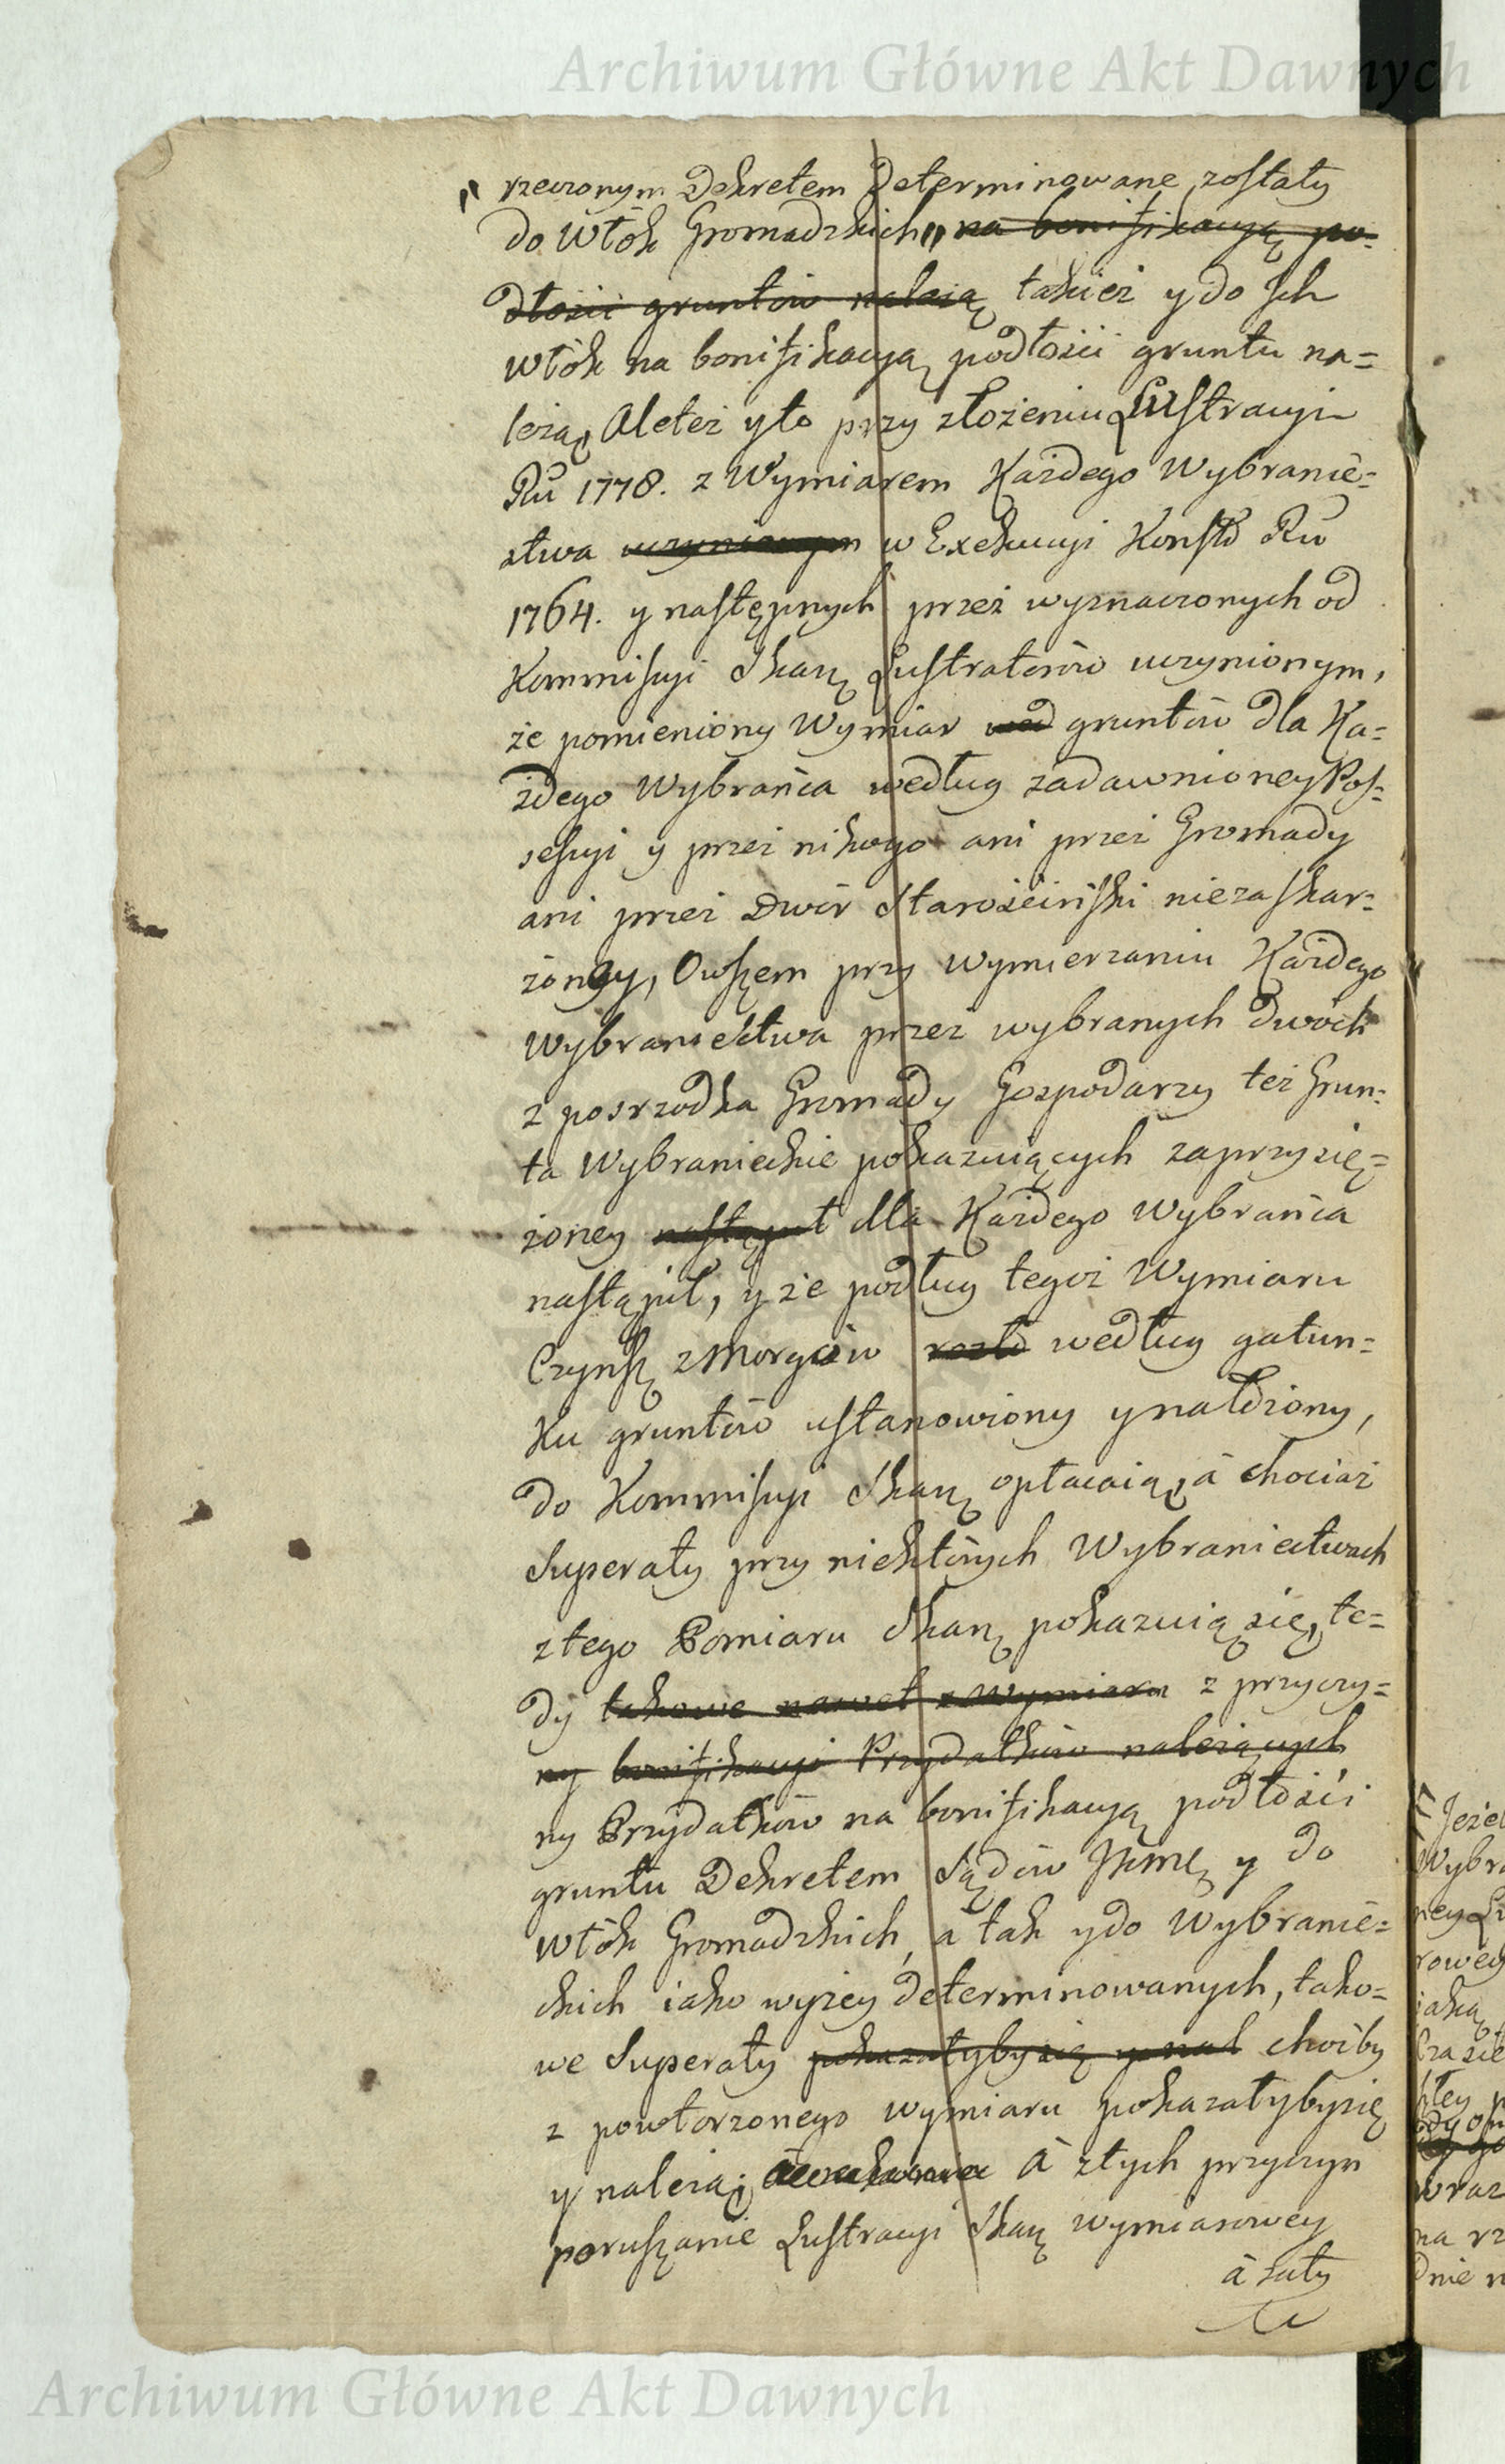 Archiwum Główne Akt Dawnych
" rzeczonym Dekretem Determinowane zostały
do Włók Gromadzkich " na bonifikacyą po-
dłości gruntów należą takież y do Jch
Włók na bonifikacyą podłości gruntu na=
leżą, Aleteż yto przy złożeniu Lustracyi
Ru 1778. z Wymiarem Każdego Wybranie=
ctwa uczynionym w Exekucyi Konstt Ru
1764. y następnych przez wyznaczonych od
Kommissyi Skarę Lustratorów uczynionym,
że pomieniony Wymiar wed gruntów dla Ka=
żdego Wybrańca według zadawnioney Pos=
sessyi y przez nikogo ani przez Gromady
ani przez Dwór Starościński niezaskar=
żoney, Owszem przy wymierzaniu Każdego
Wybraniectwa przez wybranych dwóch
z posrzodka Gromady Gospodarzy też Grun=
ta Wybranieckie pokazuiących zaprzysię=
żoney nastąpił dla Każdego Wybrańca
nastąpił, y że podług tegoż Wymiaru
Czynsz z Morgów według gatun=
ku gruntów ustanowiony ynałożony,
do Kommissyi Skarę opłacaią, à chociaż
Superaty przy niektórych Wybraniectwach
ztego Pomiaru Skarę pokazuią się, te=
dy takowe nawet z Wymiaru z przyczy=
ny bonifikacyi Przydatków należących
ny Przydatków na bonifikacyą podłości
gruntu Dekretem Sądów JKMę y do
Włók Gromadzkich, à tak ydo Wybranie=
ckich iako wyżey determinowanych, tako=
we Superaty pokazałybysię y nal choćby
z powtorzonego wymiaru pokazałybysię
y należą, à ztych przyczyn
poruszanie Lustracyi Skarę wymiarowey
à zatły
Jeżel
Wybra
ney Lu
rowey
iaką
wraz
na rz
dnie n
Archiwum Główne Akt Dawnych